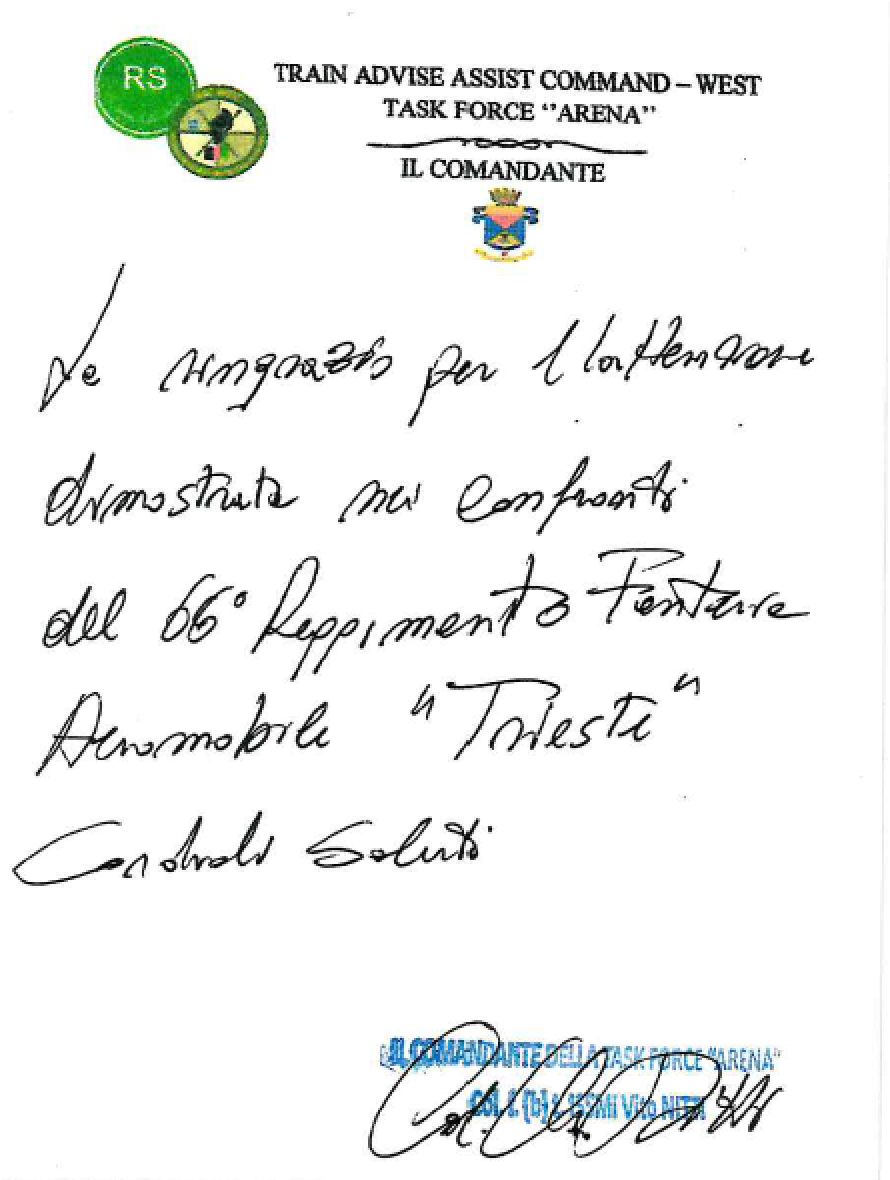 RS
TRAIN ADVISE ASSIST COMMAND – WEST
TASK FORCE "ARENA"
IL COMANDANTE
Le ringrazio per l'attenzione
dimostrata nei confronti
del 66° Reggimento Fanteria
Aeromobile "Trieste"
Cordiali Saluti
IL COMANDANTE DELLA TASK FORCE "ARENA"
Col. f. (b) t. ISSMI Vito NITTI